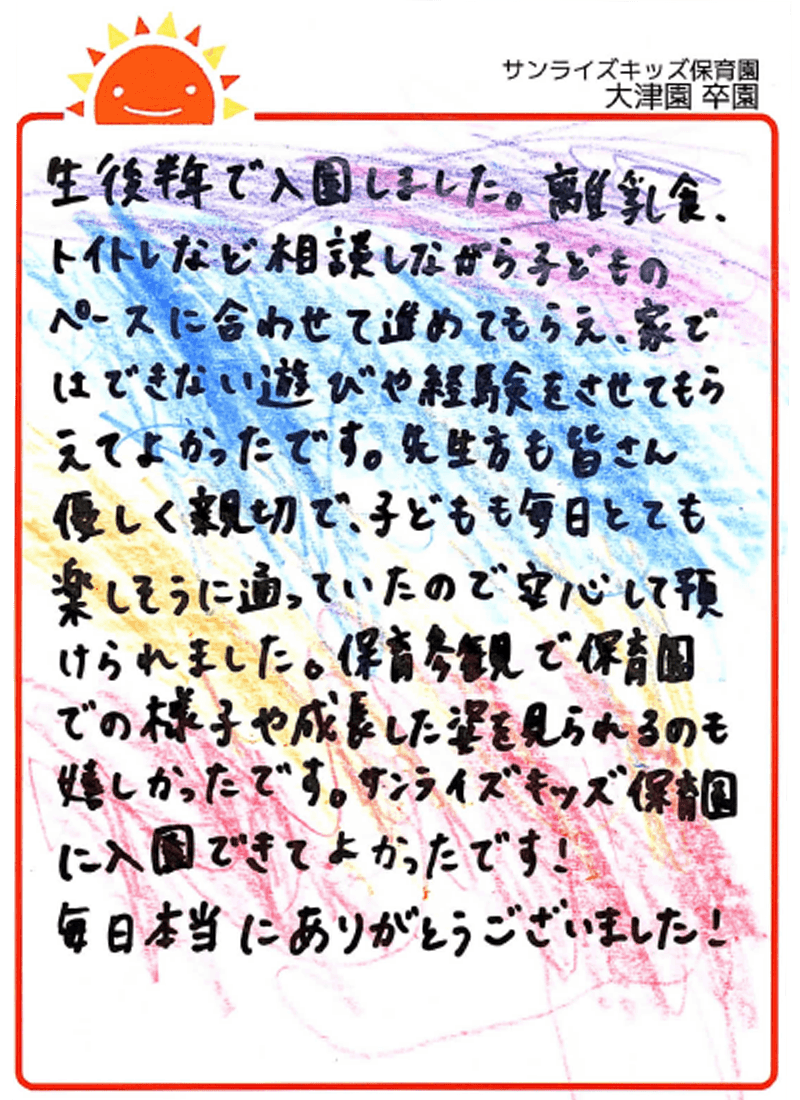 サンライズキッズ保育園
大津園 卒園
生後半年で入園しました。離乳食、
トイトレなど相談しながら子どもの
ペースに合わせて進めてもらえ、家で
はできない遊びや経験をさせてもら
えてよかったです。先生方も皆さん
優しく親切で、子どもも毎日とても
楽しそうに通っていたので安心して預
けられました。保育参観で保育園
での様子や成長した姿を見られるのも
嬉しかったです。サンライズキッズ保育園
に入園できてよかったです!
毎日本当にありがとうございました!